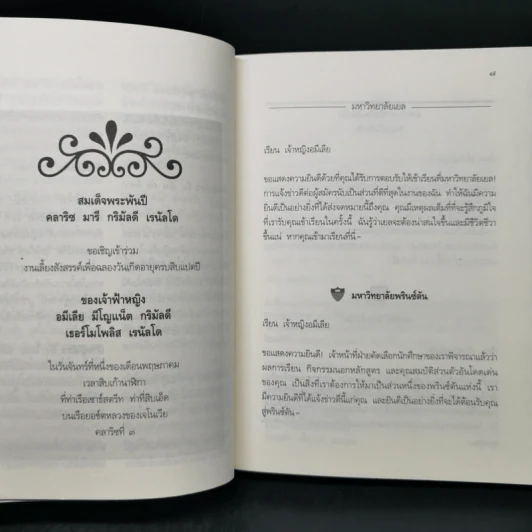 สมเด็จพระพันปี
คลาริซ มารี กริมัลดี เรนัลโด
ขอเชิญเข้าร่วม
งานเลี้ยงสังสรรค์เพื่อฉลองวันเกิดอายุครบสิบแปดปี
ของเจ้าฟ้าหญิง
อมีเลีย มีโญแน็ต กริมัลดี
เธอร์โมโพลิส เรนัลโด
ในวันจันทร์ที่หนึ่งของเดือนพฤษภาคม
เวลาสิบเก้านาฬิกา
ที่ท่าเรือเซาธ์สตรีท ท่าที่สิบเอ็ด
บนเรือยอร์ตหลวงของเจโนเวีย
คลาริซที่ ๓
๗
มหาวิทยาลัยเยล
เรียน เจ้าหญิงอมีเลีย
ขอแสดงความยินดีด้วยที่คุณได้รับการตอบรับให้เข้าเรียนที่มหาวิทยาลัยเยล!
การแจ้งข่าวดีต่อผู้สมัครนับเป็นส่วนที่ดีที่สุดในงานของฉัน ทำให้ฉันมีความ
ยินดีเป็นอย่างยิ่งที่ได้ส่งจดหมายนี้ถึงคุณ คุณมีเหตุผลเต็มที่ที่จะรู้สึกภูมิใจ
ที่เรารับคุณเข้าเรียนในครั้งนี้ ฉันรู้ว่าเยลจะต้องน่าสนใจขึ้นและมีชีวิตชีวา
ขึ้นแน่ หากคุณเข้ามาเรียนที่นี่-
มหาวิทยาลัยพรินซ์ตัน
เรียน เจ้าหญิงอมีเลีย
ขอแสดงความยินดี! เจ้าหน้าที่ฝ่ายคัดเลือกนักศึกษาของเราพิจารณาแล้วว่า
ผลการเรียน กิจกรรมนอกหลักสูตร และคุณสมบัติส่วนตัวอันโดดเด่น
ของคุณ เป็นสิ่งที่เราต้องการให้มาเป็นส่วนหนึ่งของพรินซ์ตันแห่งนี้ เรา
มีความยินดีที่ได้แจ้งข่าวดีนี้แก่คุณ และยินดีเป็นอย่างยิ่งที่จะได้ต้อนรับคุณ
สู่พรินซ์ตัน-